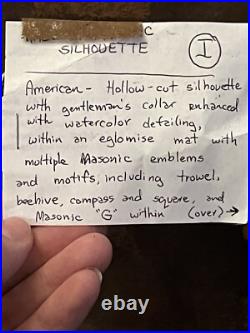 C
SILHOUETTE
I
American - Hollow-cut silhouette
with gentleman's collar enhanced
with watercolor detailing,
within an eglomise mat with
multiple Masonic emblems
and motifs, including trowel,
beehive, compass and square, and
Masonic "G" within (over) →